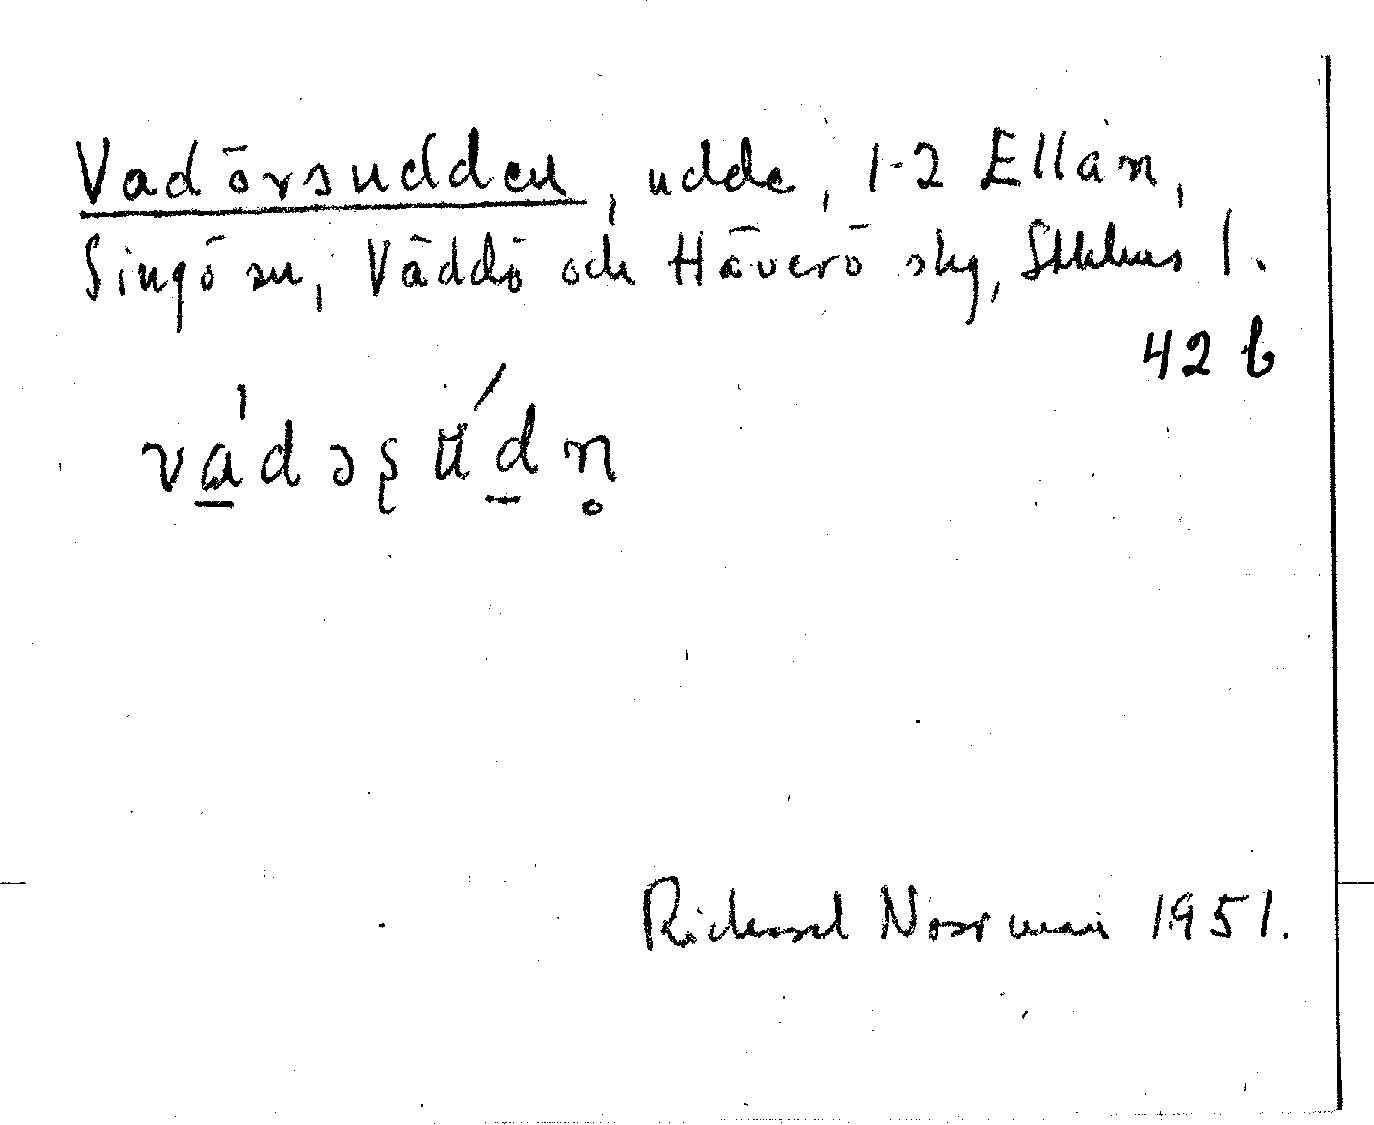 Vadörsudden, udde, 1-2 Ellan,
Singö sn, Väddö och Häverö skg, Sthlms l.
42 b
vá̱dəʂŭ́ḏn̥
Richard Norrman 1951.